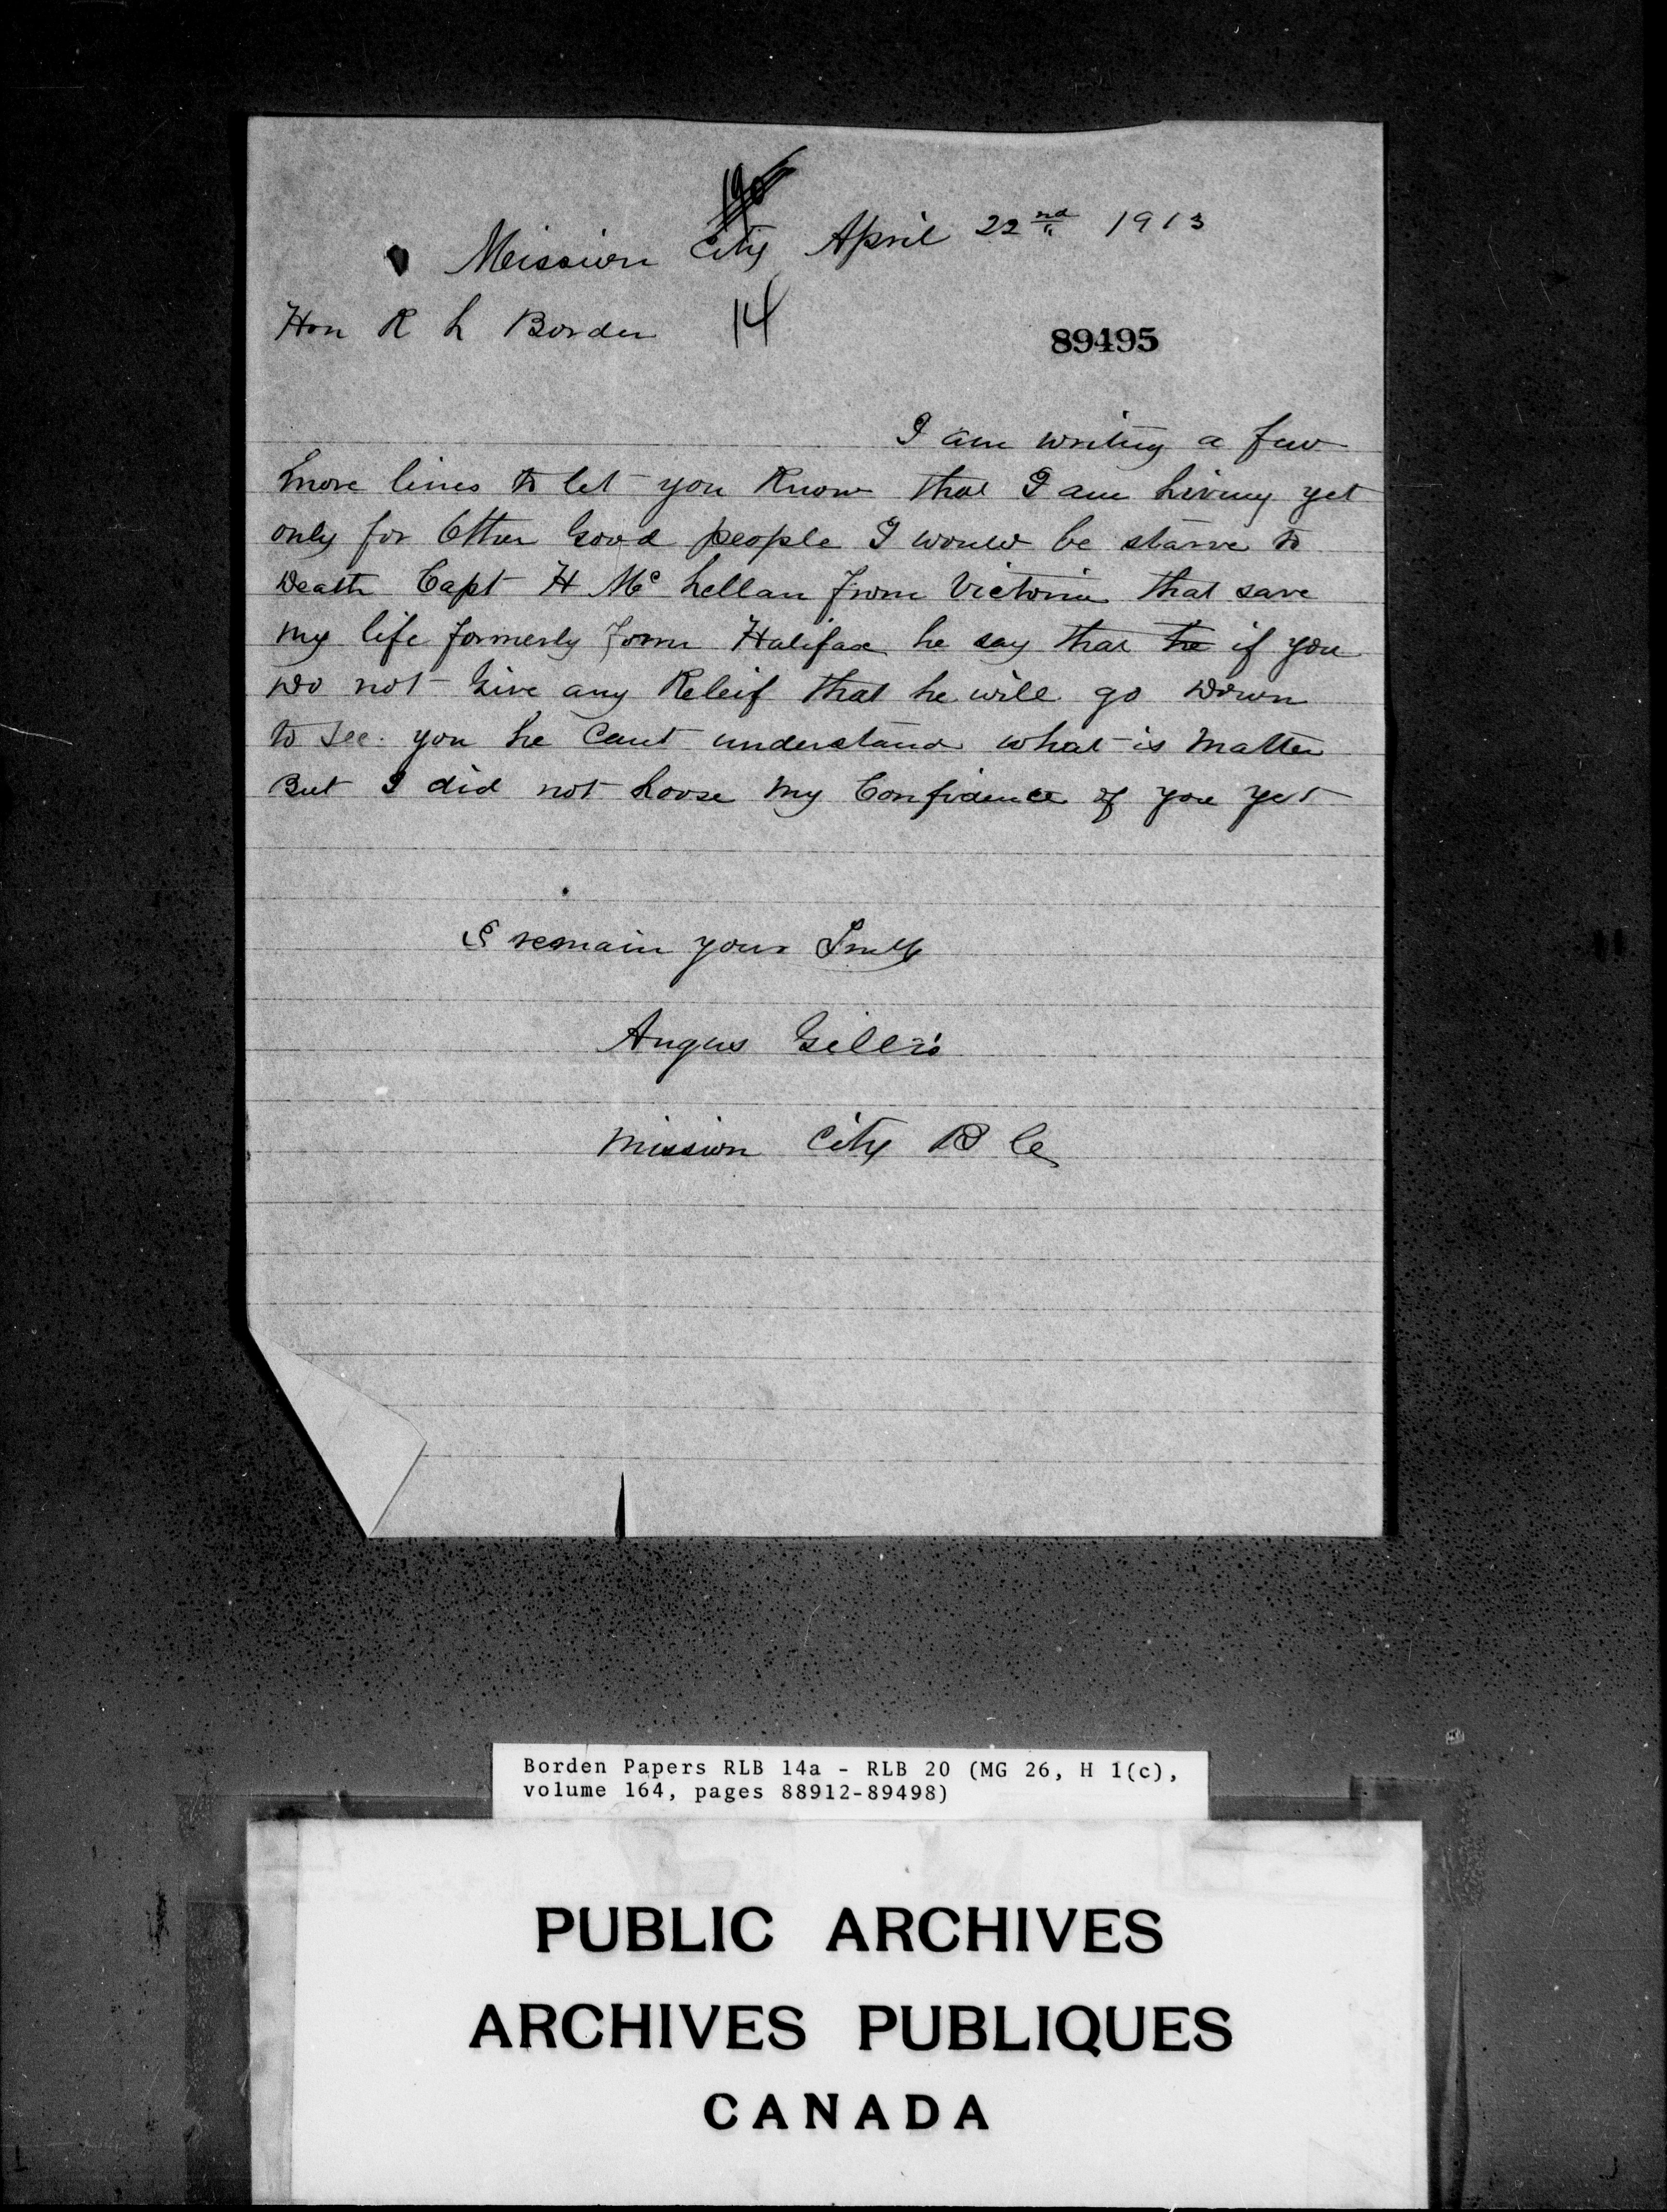 Mission City April 22nd 1913
Hon R L Borden 14
89495
I am writing a few
more lines to let you Know that I am Living yet
only for Other Good people I would be starve to
Death Capt H Mc Lellan from Victoria that save
my life formerly from Halifax he say that he if you
Do not Give any Releif that he will go Down
to see you he Cant understand what is Matter
But I did not Loose my Confidence of you yet
I remain your Truly
Angus Gillis
Mission City B C
Borden Papers RLB 14a - RLB 20 (MG 26, H 1(c),
volume 164, pages 88912-89498)
PUBLIC ARCHIVES
ARCHIVES PUBLIQUES
CANADA